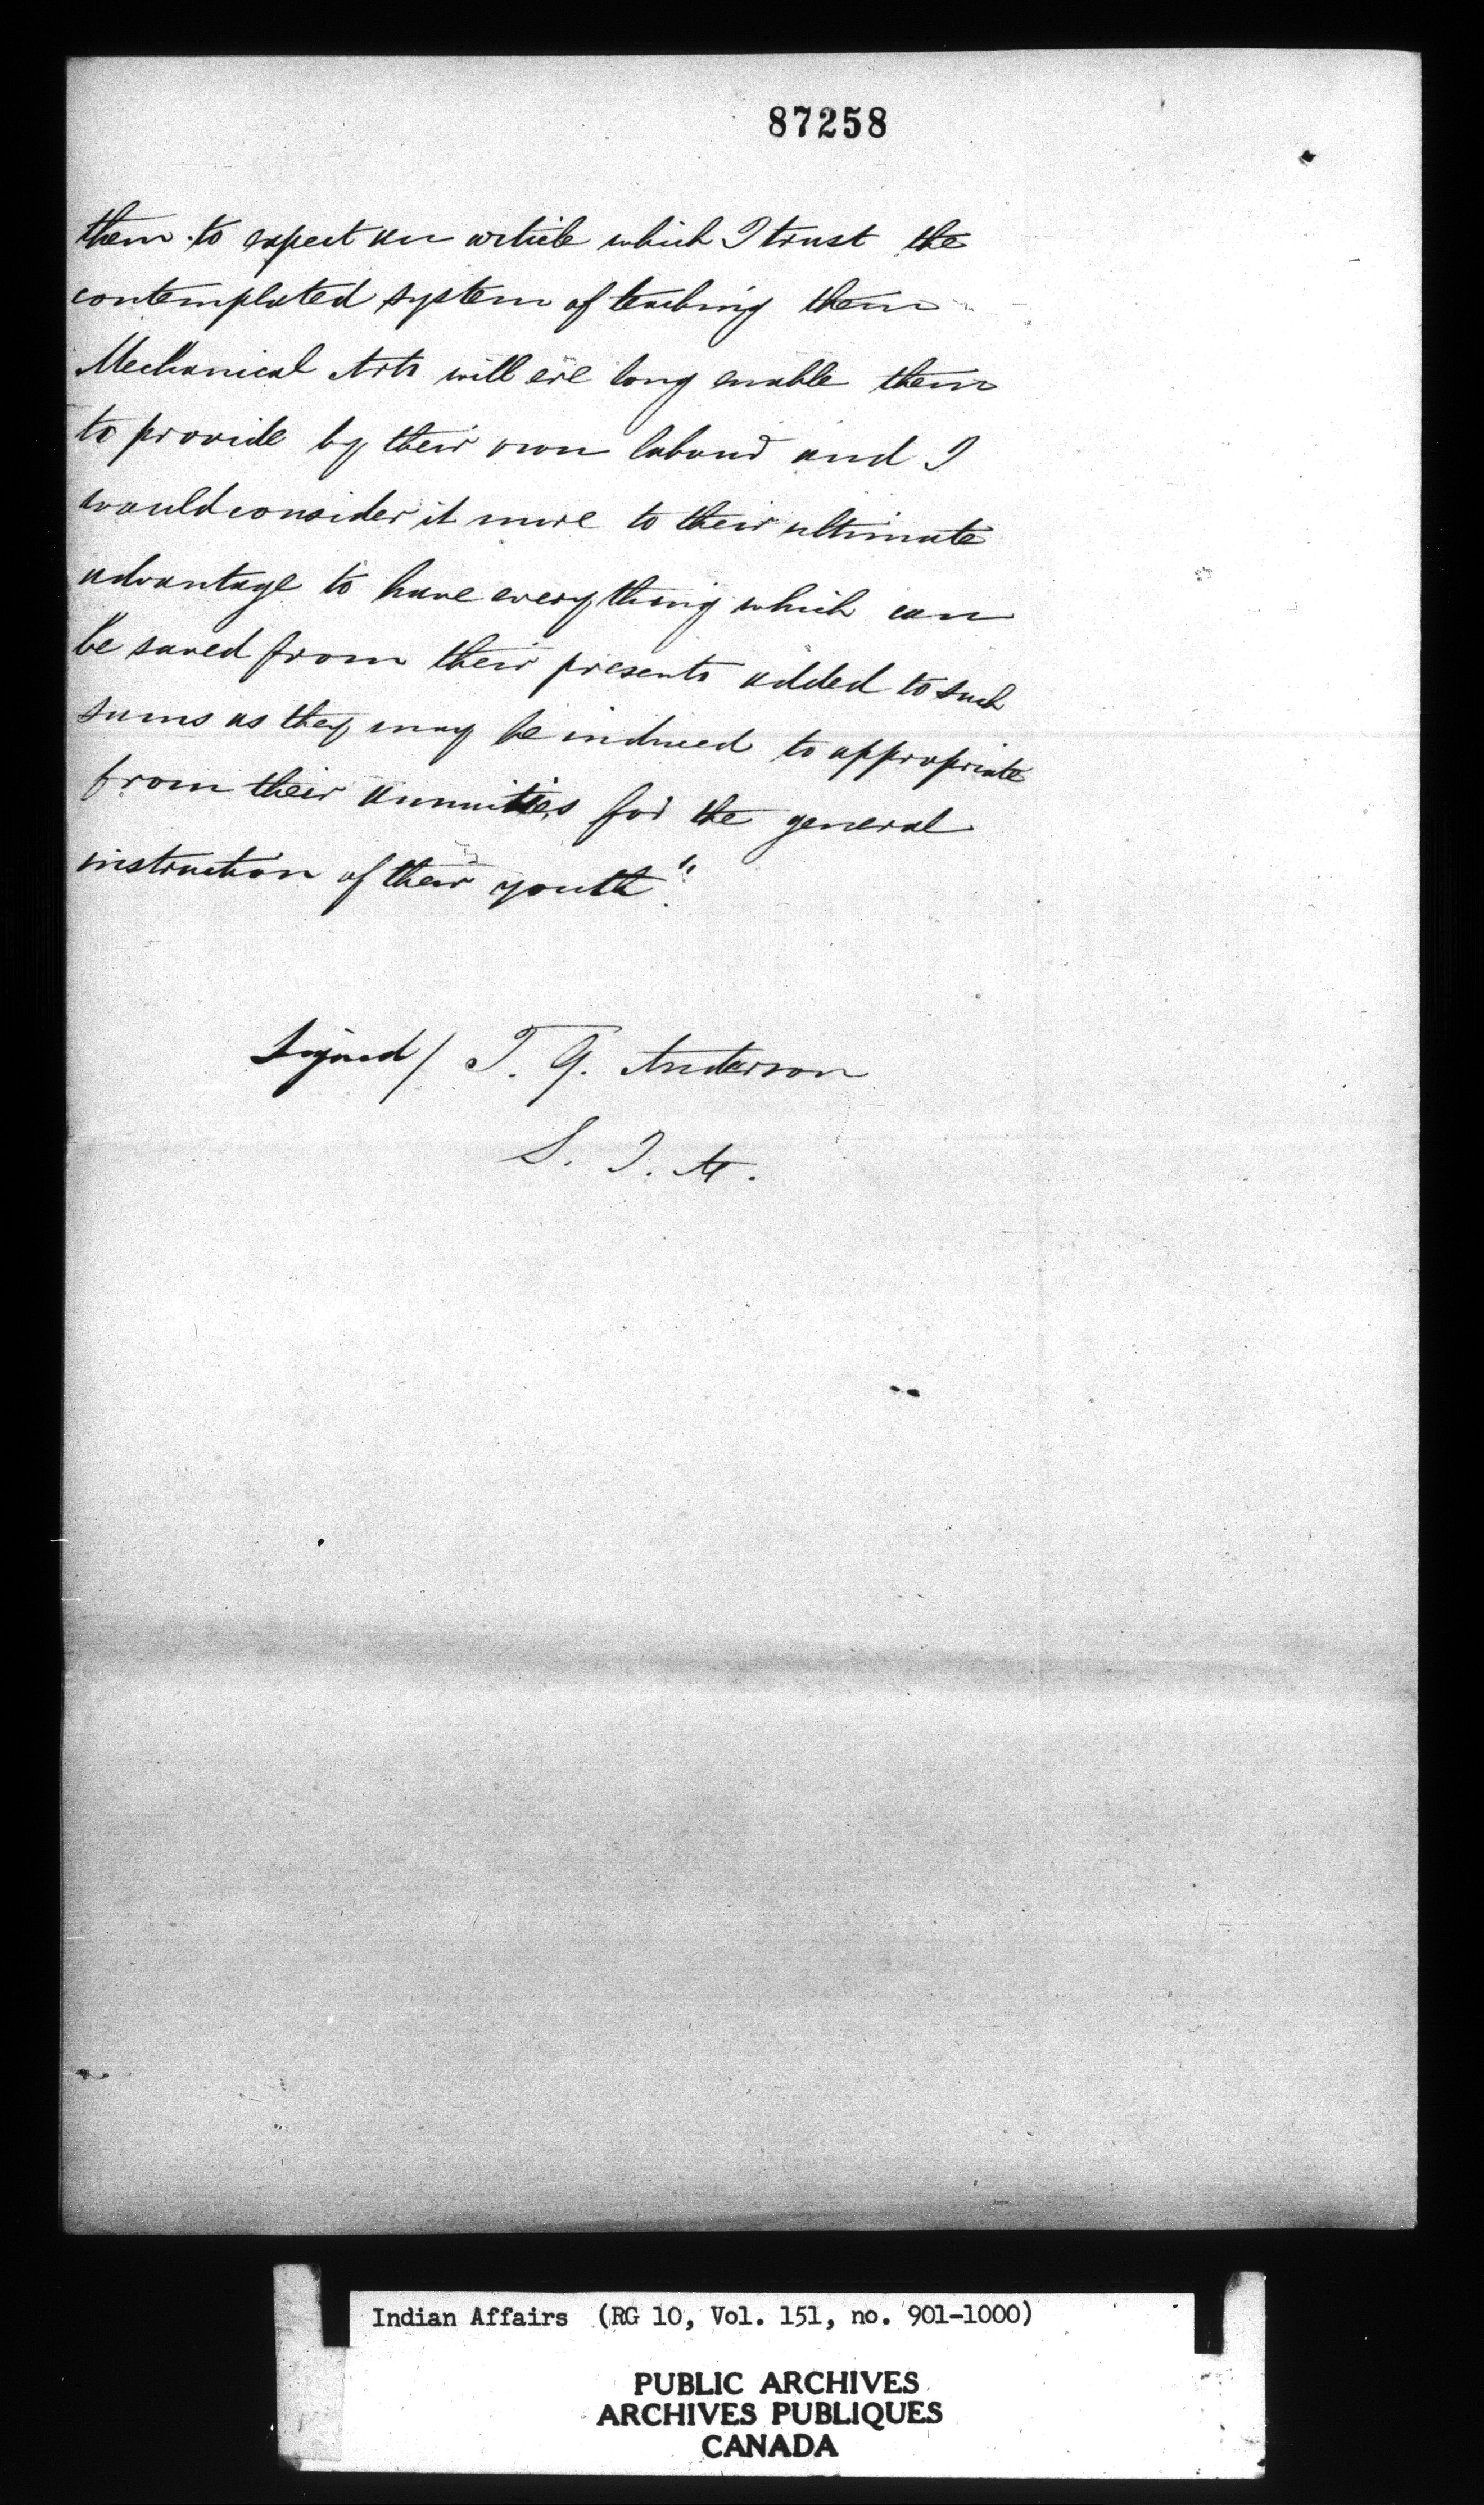 87258
them to expect an article which I trust the
contemplated system of teaching them
Mechanical Arts will ere long enable them
to provide by their own labour and I
would consider it more to their ultimate
advantage to have everything which can
be saved from their presents added to such
sums as they may be induced to appropriate
from their annuities for the general
instruction of their youth".
Signed / T. G. Anderson
S. I. A.
Indian Affairs (RG 10, Vol. 151, no. 901-1000)
PUBLIC ARCHIVES
ARCHIVES PUBLIQUES
CANADA